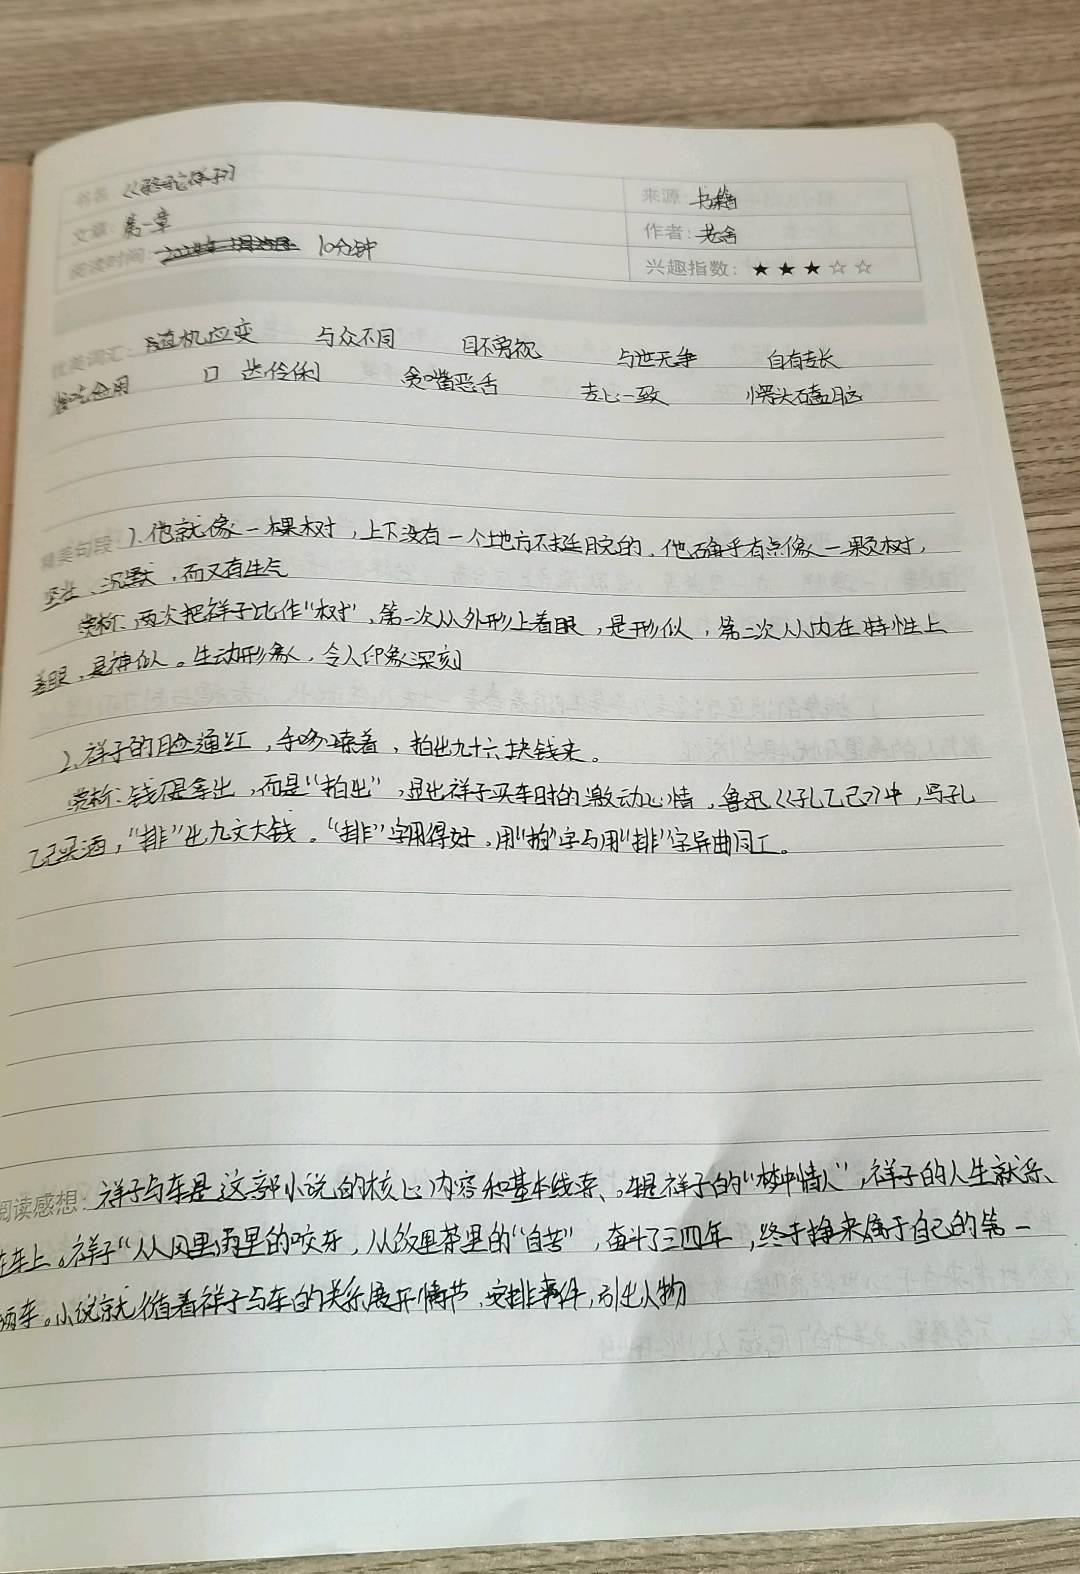 书名 《骆驼祥子》 来源: 书籍
文章: 第一章 作者: 老舍
阅读时间: 10分钟 兴趣指数: ★★★☆☆
优美词汇: 随机应变 与众不同 目不旁视 与世无争 自有专长
口齿伶俐 贪嘴恶舌 专心一致 愣头磕脑
精美句段 1.他就像一棵树，上下没有一个地方不挺脱的。他确乎有点像一颗树，
坚壮、沉默，而又有生气
赏析: 两次把祥子比作“树”，第一次从外形上着眼，是形似，第二次从内在特性上
着眼，是神似。生动形象，令人印象深刻
2.祥子的脸通红，手哆嗦着，拍出九十六块钱来。
赏析: 钱不是拿出，而是“拍出”，显出祥子买车时的激动心情，鲁迅《孔乙己》中，写孔
乙己买酒，“排”出九文大钱。“排”字用得好，用“拍”字与用“排”字异曲同工。
阅读感想: 祥子与车是这部小说的核心内容和基本线索、。车是祥子的“梦中情人”，祥子的人生就系
在车上。祥子“从风里雨里的咬牙，从饭里茶里的“自苦”，奋斗了三四年，终于挣来属于自己的第一
辆车。小说就循着祥子与车的关系展开情节，安排事件，引出人物